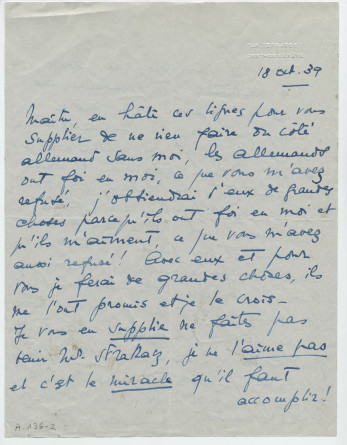 18 oct. 39
Maître, en hâte ces lignes pour vous
supplier de ne rien faire du côté
allemand sans moi, les allemands
ont foi en moi, ce que vous m'avez
refusé, j'obtiendrai d'eux de grandes
choses parcequ'ils ont foi en moi et
qu'ils m'aiment, ce que vous m'avez
aussi refusé! Avec eux et pour
vous je ferai de grandes choses, ils
me l'ont promis et je le crois_
Je vous en supplie ne faites pas
venir Mr. , je ne l'aime pas
et c'est le miracle qu'il faut
accomplir!
A.136-2